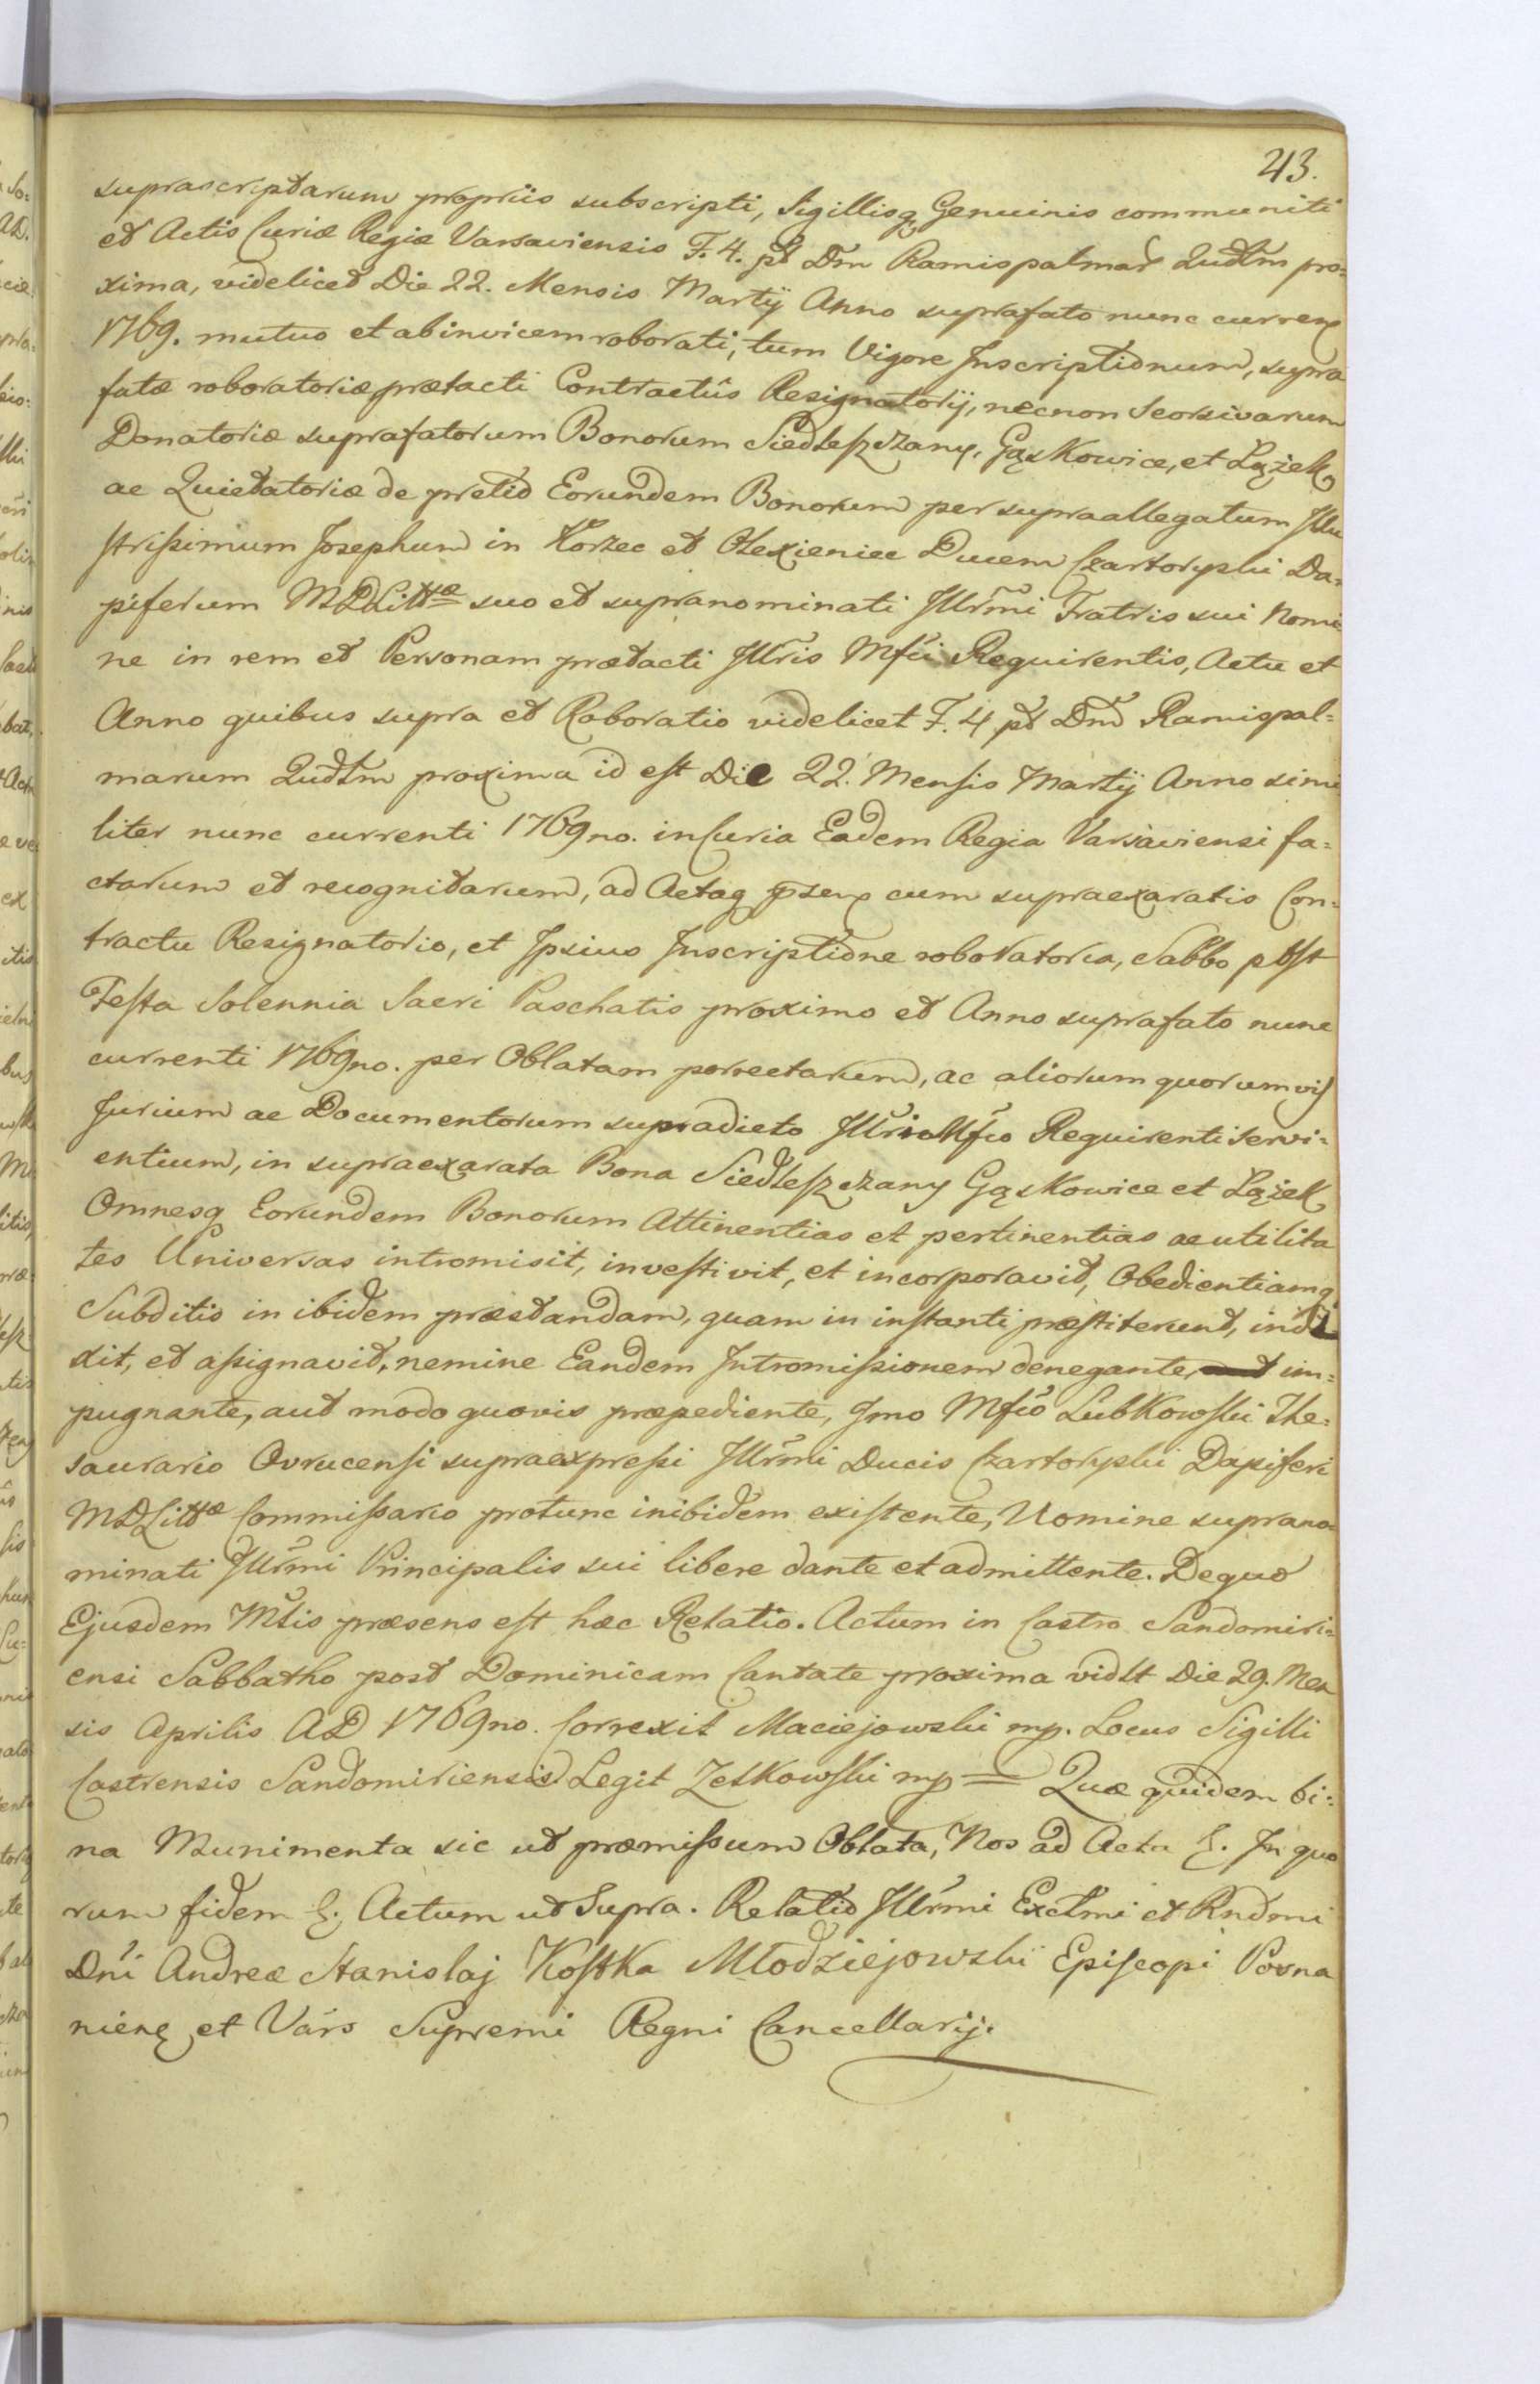 213.
suprascriptarum propriis subscripti, Sigillisq Genuinis communiti
et Actis Curiæ Regiæ Varsaviensis F. 4. pt Dm Ramispalmar Qudtm pro=
xima, videlicet Die 22. Mensis Martÿ Anno suprafato nunc curren
1769. mutuo et abinvicem roborati, tum Vigore Inscriptionum, supra
fatæ roboratoriæ prætacti Contractûs Resignatorÿ, necnon Seorsivarum
Donatoriæ suprafatorum Bonorum Siedleszczany, Gąskowice, et Łążek
ac Quietatoriæ de pretio Eorundem Bonorum per supraallegatum Illu
strissimum Josephum in Korzec et Olexieniec Ducem Czartoryski Da=
piferum MDLittæ suo et supranominati Illrmi Fratris sui Nomi
ne in rem et Personam prætacti Illris Mfci Requirentis, Actu et
Anno quibus supra et Roboratio videlicet F. 4 pt Dm̃ Ramispal=
marum Qudtm proxima id est Die 22. Mensis Martÿ Anno simi
liter nunc currenti 1769no. in Curia Eadem Regia Varsaviensi fa=
ctarum et recognitarum, ad Actaq psen cum supraexaratis Con=
tractu Resignatorio, et Ipsius Inscriptione roboratoria, Sabbo post
Festa Solennia Sacri Paschatis proximo et Anno suprafato nunc
currenti 1769no. per Oblatam porrectarum, ac aliorum quorumvis
Jurium ac Documentorum supradicto Illri Mfco Requirenti servi=
entium, in supraexarata Bona Siedleszczany Gąskowice et Łążek
Omnesq Eorundem Bonorum Attinentias et pertinentias ac utilita
tes Universas intromisit, investivit, et incorporavit, Obedientiamq
Subditis in ibidem præstandam, quam in instanti præstiterunt, indi
xit, et assignavit, nemine Eandem Intromissionem denegante, im=
pugnante, aut modo quovis præpediente, Imo Mfco Lubkowski The=
saurario Ovrucensi supraexpressi Illrmi Ducis Czartoryski Dapiferi
MDLittæ Commissario protunc inibidem existente, Nomine suprano=
minati Illrmi Principalis sui libere dante et admittente. De quo
Ejusdem Mtis præsens est hæc Relatio. Actum in Castro Sandomiri=
ensi Sabbatho post Dominicam Cantate proxima vidlt Die 29. Men
sis Aprilis AD 1769no. Correxit Maciejowski mp. Locus Sigilli
Castrensis Sandomiriensis Legit Zetkowski mp = Quæ quidem bi=
na Munimenta sic ut præmissum Oblata, Nos ad Acta &. In quo
rum fidem &. Actum ut Supra. Relatio Illrmi Exctmi et Rndmi
Dni Andreæ Stanislaj Kostka Młodziejowski Episcopi Posna
nien et Vars Supremi Regni Cancellarij.